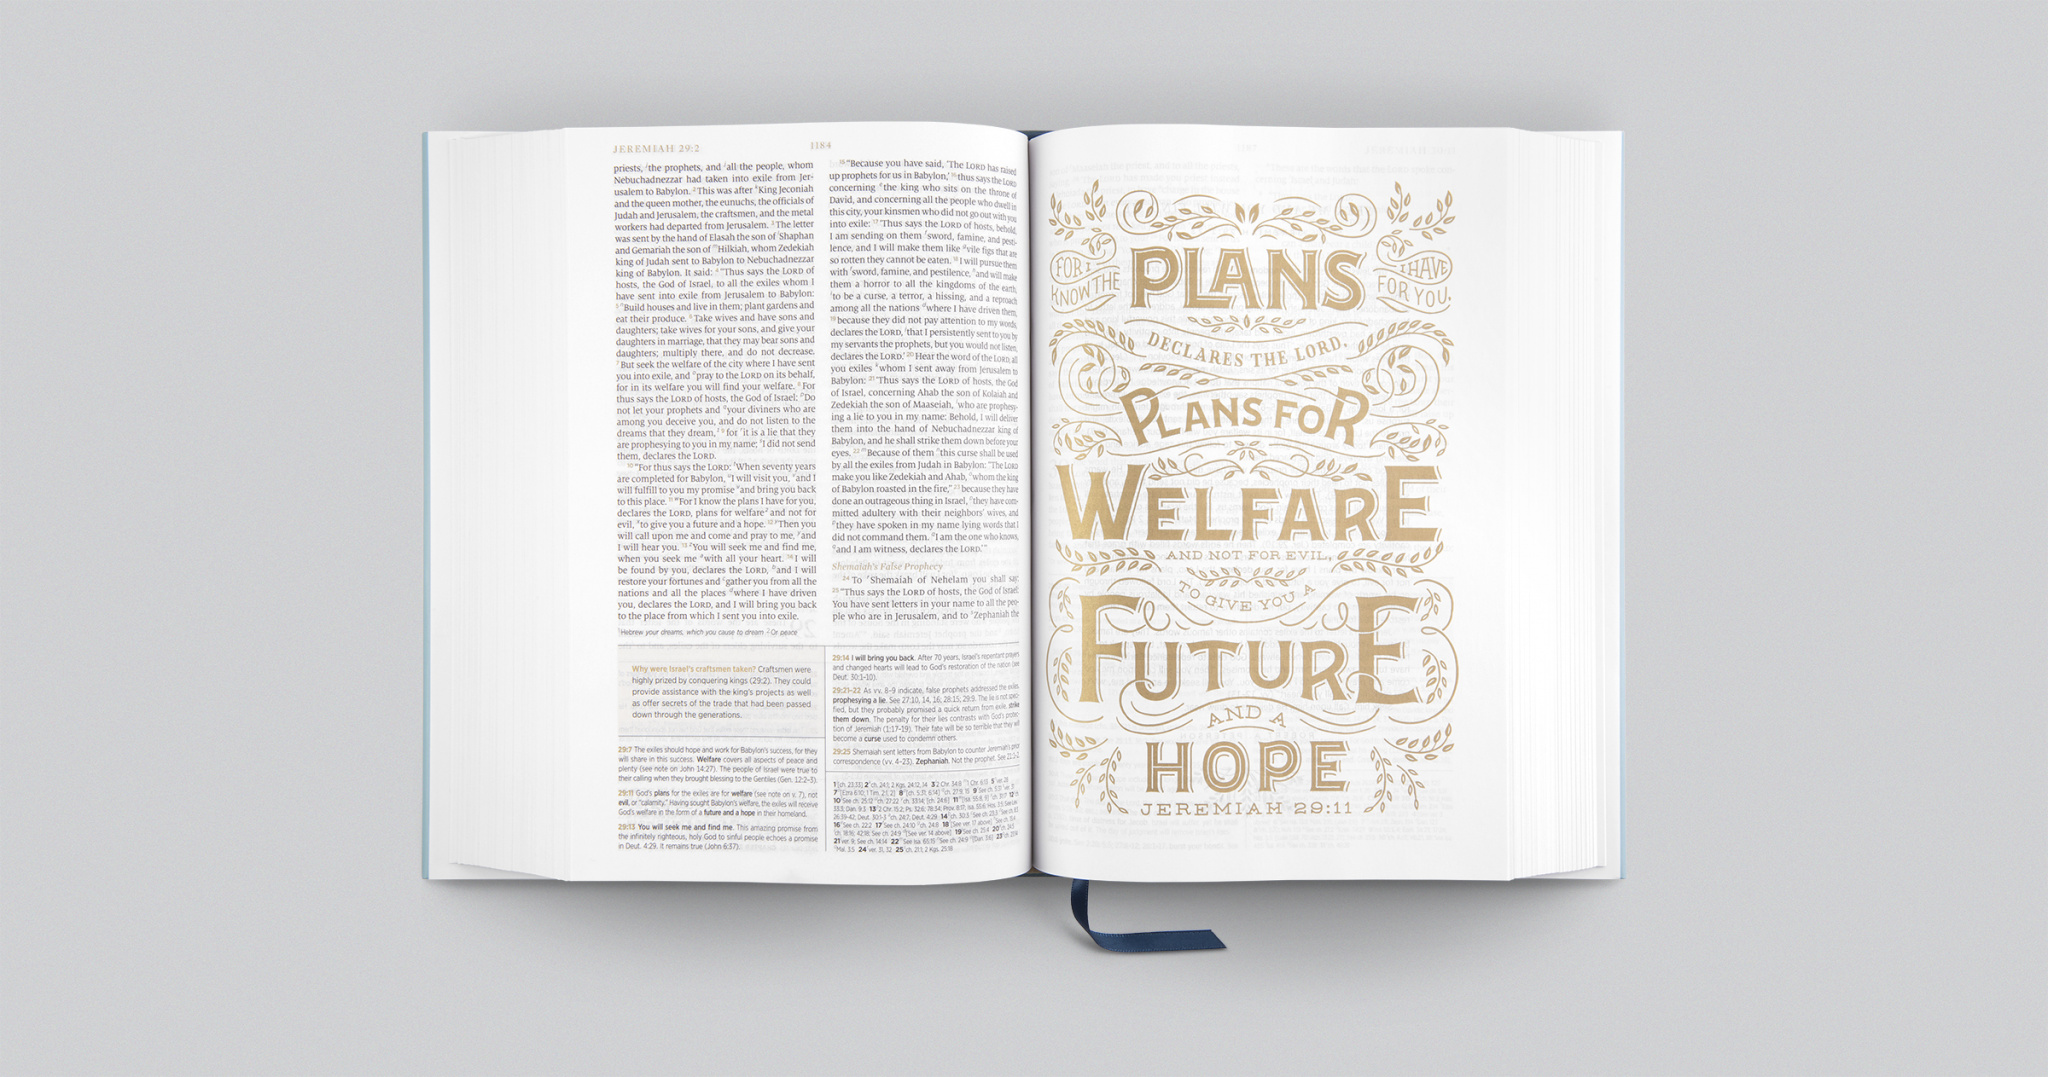 JEREMIAH 29:2
1184
priests, the prophets, and all the people, whom
Nebuchadnezzar had taken into exile from Jer-
usalem to Babylon. 2 This was after King Jeconiah
and the queen mother, the eunuchs, the officials of
Judah and Jerusalem, the craftsmen, and the metal
workers had departed from Jerusalem. 3 The letter
was sent by the hand of Elasah the son of Shaphan
and Gemariah the son of Hilkiah, whom Zedekiah
king of Judah sent to Babylon to Nebuchadnezzar
king of Babylon. It said: 4 “Thus says the LORD of
hosts, the God of Israel, to all the exiles whom I
have sent into exile from Jerusalem to Babylon:
5 Build houses and live in them; plant gardens and
eat their produce. 6 Take wives and have sons and
daughters; take wives for your sons, and give your
daughters in marriage, that they may bear sons and
daughters; multiply there, and do not decrease.
7 But seek the welfare of the city where I have sent
you into exile, and pray to the LORD on its behalf,
for in its welfare you will find your welfare. 8 For
thus says the LORD of hosts, the God of Israel: Do
not let your prophets and your diviners who are
among you deceive you, and do not listen to the
dreams that they dream, 9 for it is a lie that they
are prophesying to you in my name; I did not send
them, declares the LORD.
10 “For thus says the LORD: When seventy years
are completed for Babylon, I will visit you, and I
will fulfill to you my promise and bring you back
to this place. 11 For I know the plans I have for you,
declares the LORD, plans for welfare and not for
evil, to give you a future and a hope. 12 Then you
will call upon me and come and pray to me, and
I will hear you. 13 You will seek me and find me,
when you seek me with all your heart. 14 I will
be found by you, declares the LORD, and I will
restore your fortunes and gather you from all the
nations and all the places where I have driven
you, declares the LORD, and I will bring you back
to the place from which I sent you into exile.
Hebrew your dreams, which you cause to dream 2 Or peace
Why were Israel's craftsmen taken? Craftsmen were
highly prized by conquering kings (29:2). They could
provide assistance with the king's projects as well
as offer secrets of the trade that had been passed
down through the generations.
29:7 The exiles should hope and work for Babylon's success, for they
will share in this success. Welfare covers all aspects of peace and
plenty (see note on John 14:27). The people of Israel were true to
their calling when they brought blessing to the Gentiles (Gen. 12:2–3).
29:11 God's plans for the exiles are for welfare (see note on v. 7), not
evil, or “calamity.” Having sought Babylon's welfare, the exiles will receive
God's welfare in the form of a future and a hope in their homeland.
29:13 You will seek me and find me. This amazing promise from
the infinitely righteous, holy God to sinful people echoes a promise
in Deut. 4:29. It remains true (John 6:37).
15 “Because you have said, ‘The LORD has raised
up prophets for us in Babylon,’ 16 thus says the LORD
concerning the king who sits on the throne of
David, and concerning all the people who dwell in
this city, your kinsmen who did not go out with you
into exile: 17 ‘Thus says the LORD of hosts, behold,
I am sending on them sword, famine, and pesti-
lence, and I will make them like vile figs that are
so rotten they cannot be eaten. 18 I will pursue them
with sword, famine, and pestilence, and will make
them a horror to all the kingdoms of the earth,
to be a curse, a terror, a hissing, and a reproach
among all the nations where I have driven them,
19 because they did not pay attention to my words,
declares the LORD, that I persistently sent to you by
my servants the prophets, but you would not listen,
declares the LORD.’ 20 Hear the word of the LORD, all
you exiles whom I sent away from Jerusalem to
Babylon: 21 ‘Thus says the LORD of hosts, the God
of Israel, concerning Ahab the son of Kolaiah and
Zedekiah the son of Maaseiah, who are prophesy-
ing a lie to you in my name: Behold, I will deliver
them into the hand of Nebuchadnezzar king of
Babylon, and he shall strike them down before your
eyes. 22 Because of them this curse shall be used
by all the exiles from Judah in Babylon: “The LORD
make you like Zedekiah and Ahab, whom the king
of Babylon roasted in the fire,” 23 because they have
done an outrageous thing in Israel, they have com-
mitted adultery with their neighbors' wives, and
they have spoken in my name lying words that I
did not command them. I am the one who knows,
and I am witness, declares the LORD.’”
Shemaiah's False Prophecy
24 To Shemaiah of Nehelam you shall say:
25 “Thus says the LORD of hosts, the God of Israel:
You have sent letters in your name to all the peo-
ple who are in Jerusalem, and to Zephaniah the
29:14 I will bring you back. After 70 years, Israel's repentant prayers
and changed hearts will lead to God's restoration of the nation (see
Deut. 30:1–10).
29:21–22 As vv. 8–9 indicate, false prophets addressed the exiles
prophesying a lie. See 27:10, 14, 16; 28:15; 29:9. The lie is not speci-
fied, but they probably promised a quick return from exile. strike
them down. The penalty for their lies contrasts with God's protec-
tion of Jeremiah (1:17–19). Their fate will be so terrible that they will
become a curse used to condemn others.
29:25 Shemaiah sent letters from Babylon to counter Jeremiah's prior
correspondence (vv. 4–23). Zephaniah. Not the prophet. See 21:1–2
FOR I
KNOW THE
PLANS
I HAVE
FOR YOU,
DECLARES THE LORD,
PLANS FOR
WELFARE
AND NOT FOR EVIL,
TO GIVE YOU A
FUTURE
AND A
HOPE
JEREMIAH 29:11